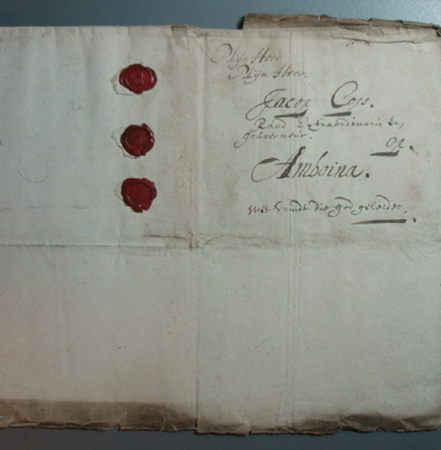 Mijn Heer
Mijn Heer.
Jacob Cops.
Raad Extraordinaris &,
Gouverneur.
op
Amboina.
met vriendt die god geleide.